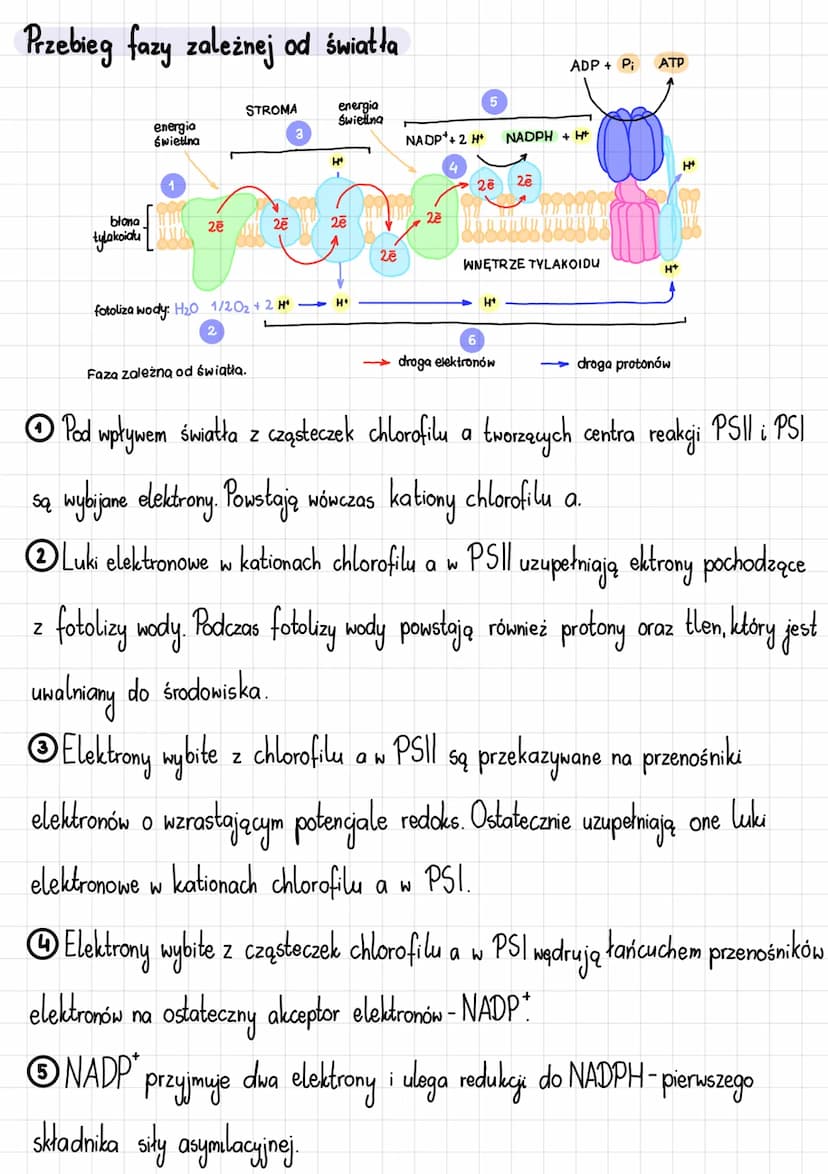 Przebieg fazy zależnej od światła
ADP + Pi ATP
STROMA
energia świetlna
energia świetlna
5
3
NADP⁺ + 2 H⁺ NADPH + H⁺
H⁺
4
H⁺
1
2ē 2ē
błona tylakoidu
2ē 2ē 2ē 2ē
2ē
WNĘTRZE TYLAKOIDU
H⁺
fotoliza wody: H₂O 1/2O₂ + 2 H⁺ H⁺ H⁺
2
6
Faza zależna od światła.
droga elektronów
droga protonów
① Pod wpływem światła z cząsteczek chlorofilu a tworzących centra reakcji PSII i PSI
są wybijane elektrony. Powstają wówczas kationy chlorofilu a.
② Luki elektronowe w kationach chlorofilu a w PSII uzupełniają ektrony pochodzące
z fotolizy wody. Podczas fotolizy wody powstają również protony oraz tlen, który jest
uwalniany do środowiska.
③ Elektrony wybite z chlorofilu a w PSII są przekazywane na przenośniki
elektronów o wzrastającym potencjale redoks. Ostatecznie uzupełniają one luki
elektronowe w kationach chlorofilu a w PSI.
④ Elektrony wybite z cząsteczek chlorofilu a w PSI wędrują łańcuchem przenośników
elektronów na ostateczny akceptor elektronów - NADP⁺.
⑤ NADP⁺ przyjmuje dwa elektrony i ulega redukcji do NADPH - pierwszego
składnika siły asymilacyjnej.